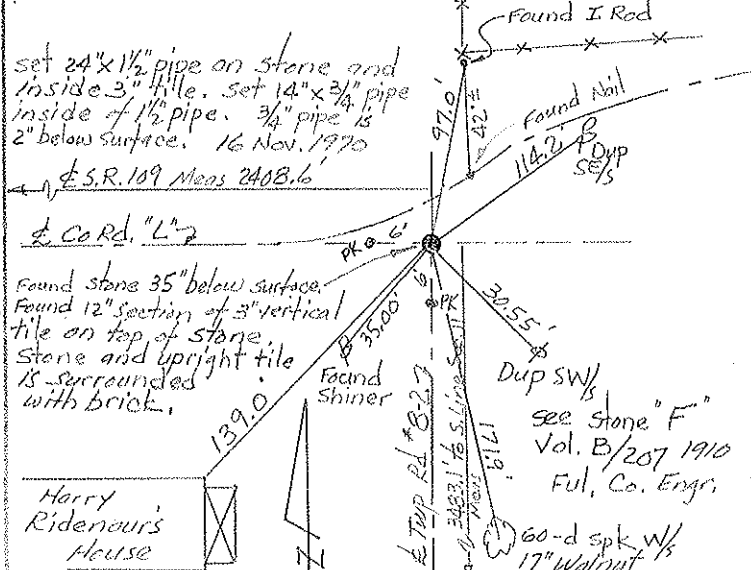 Found I Rod
set 24"x1½" pipe on stone and
inside 3" tile. set 14"x¾" pipe
inside of 1½" pipe. ¾" pipe is
2" below surface. 16 Nov. 1970
97.0'
42'±
Found Nail
114.2'
Dup
SE/s
℄ S.R. 109 Meas 2408.6'
℄ Co Rd. "L"
PK
6'
Found stone 35" below surface.
Found 12" section of 3" vertical
tile on top of stone.
Stone and upright tile
is surrounded
with brick.
6'
PK
35.00'
30.55'
Found
Shiner
Dup SW/s
139.0'
see stone "F"
Vol. B/207 1910
Ful. Co. Engr.
℄ Twp Rd #8-2
3483.1' to S. Line Sec. 11
Meas
171.9'
Harry
Ridenour's
House
N
60-d spk W/s
17" Walnut